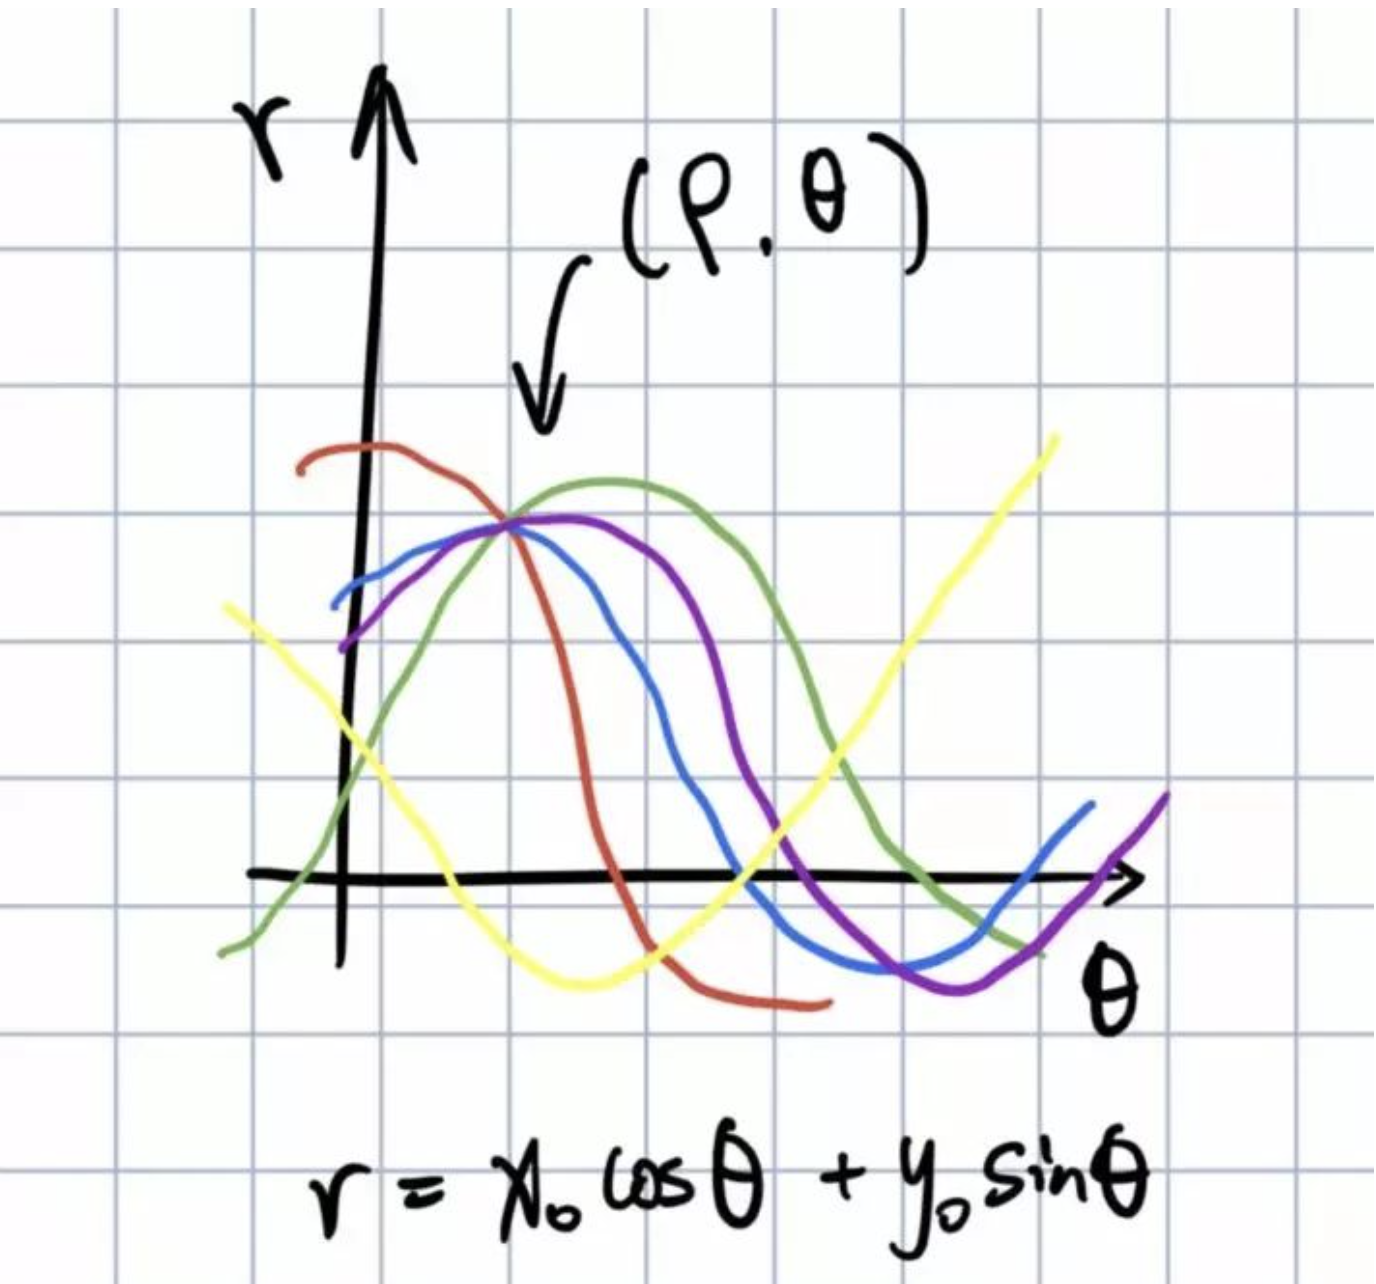 r
(ρ.θ)
θ
r = x₀ cosθ + y₀ sinθ